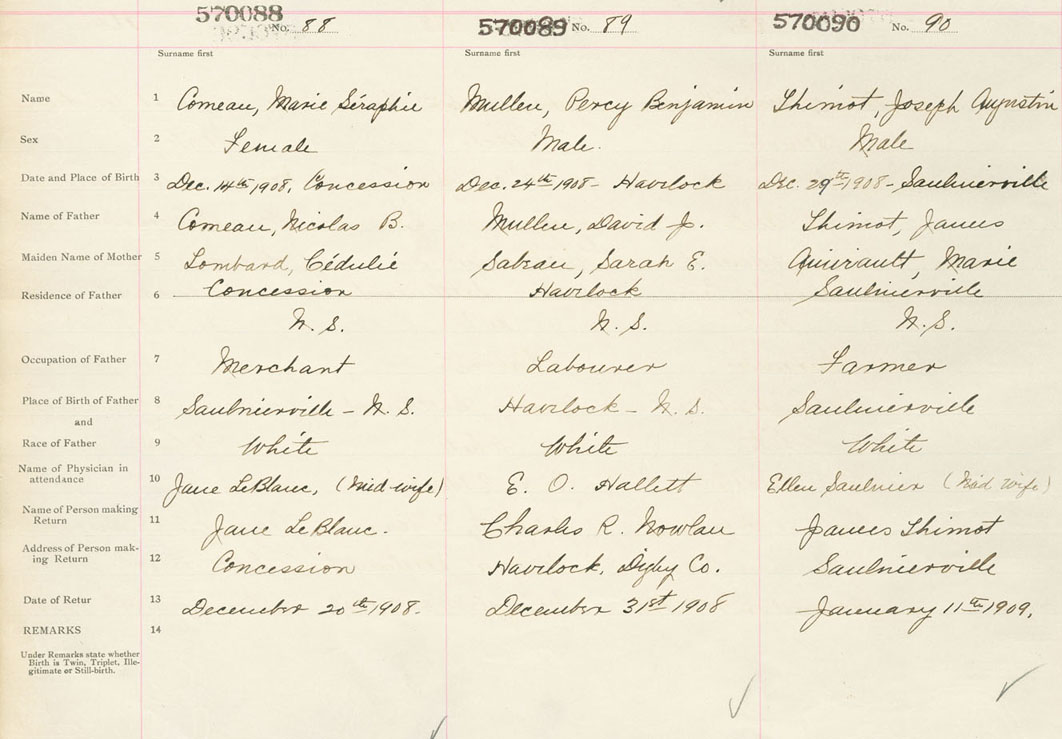 570088 No. 88 570089 No. 89 570090 No. 90
Surname first Surname first Surname first
Name 1 Comeau, Marie Séraphie Mullen, Percy Benjamin Thimot, Joseph Augustin
Sex 2 Female Male. Male
Date and Place of Birth 3 Dec. 14th 1908, Concession Dec. 24th 1908 - Havelock Dec. 29th 1908 - Saulnierville
Name of Father 4 Comeau, Nicolas B. Mullen, David J. Thimot, James
Maiden Name of Mother 5 Lombard, Cédulie Sabean, Sarah E. Amirault, Marie
Residence of Father 6 Concession Havelock Saulnierville
N. S. N. S. N. S.
Occupation of Father 7 Merchant Labourer Farmer
Place of Birth of Father 8 Saulnierville - N. S. Havelock - N. S. Saulnierville
and
Race of Father 9 White White White
Name of Physician in
attendance 10 Jane LeBlanc, (Mid wife) E. O. Hallett Ellen Saulnier (Mid wife)
Name of Person making
Return 11 Jane LeBlanc. Charles R. Nowlan James Thimot
Address of Person mak-
ing Return 12 Concession Havelock, Digby Co. Saulnierville
Date of Retur 13 December 20th 1908. December 31st 1908 January 11th 1909.
REMARKS 14
Under Remarks state whether
Birth is Twin, Triplet, Ille-
gitimate or Still-birth.